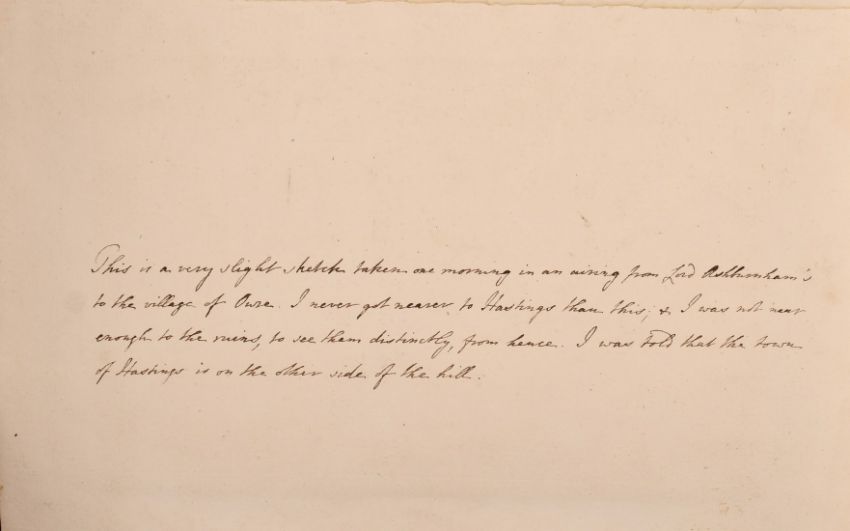 This is a very slight sketch taken one morning in an airing from Lord Ashburnham's
to the village of Owre. I never got nearer to Hastings than this; & I was not near
enough to the ruins, to see them distinctly, from hence. I was told that the town
of Hastings is on the other side of the hill.